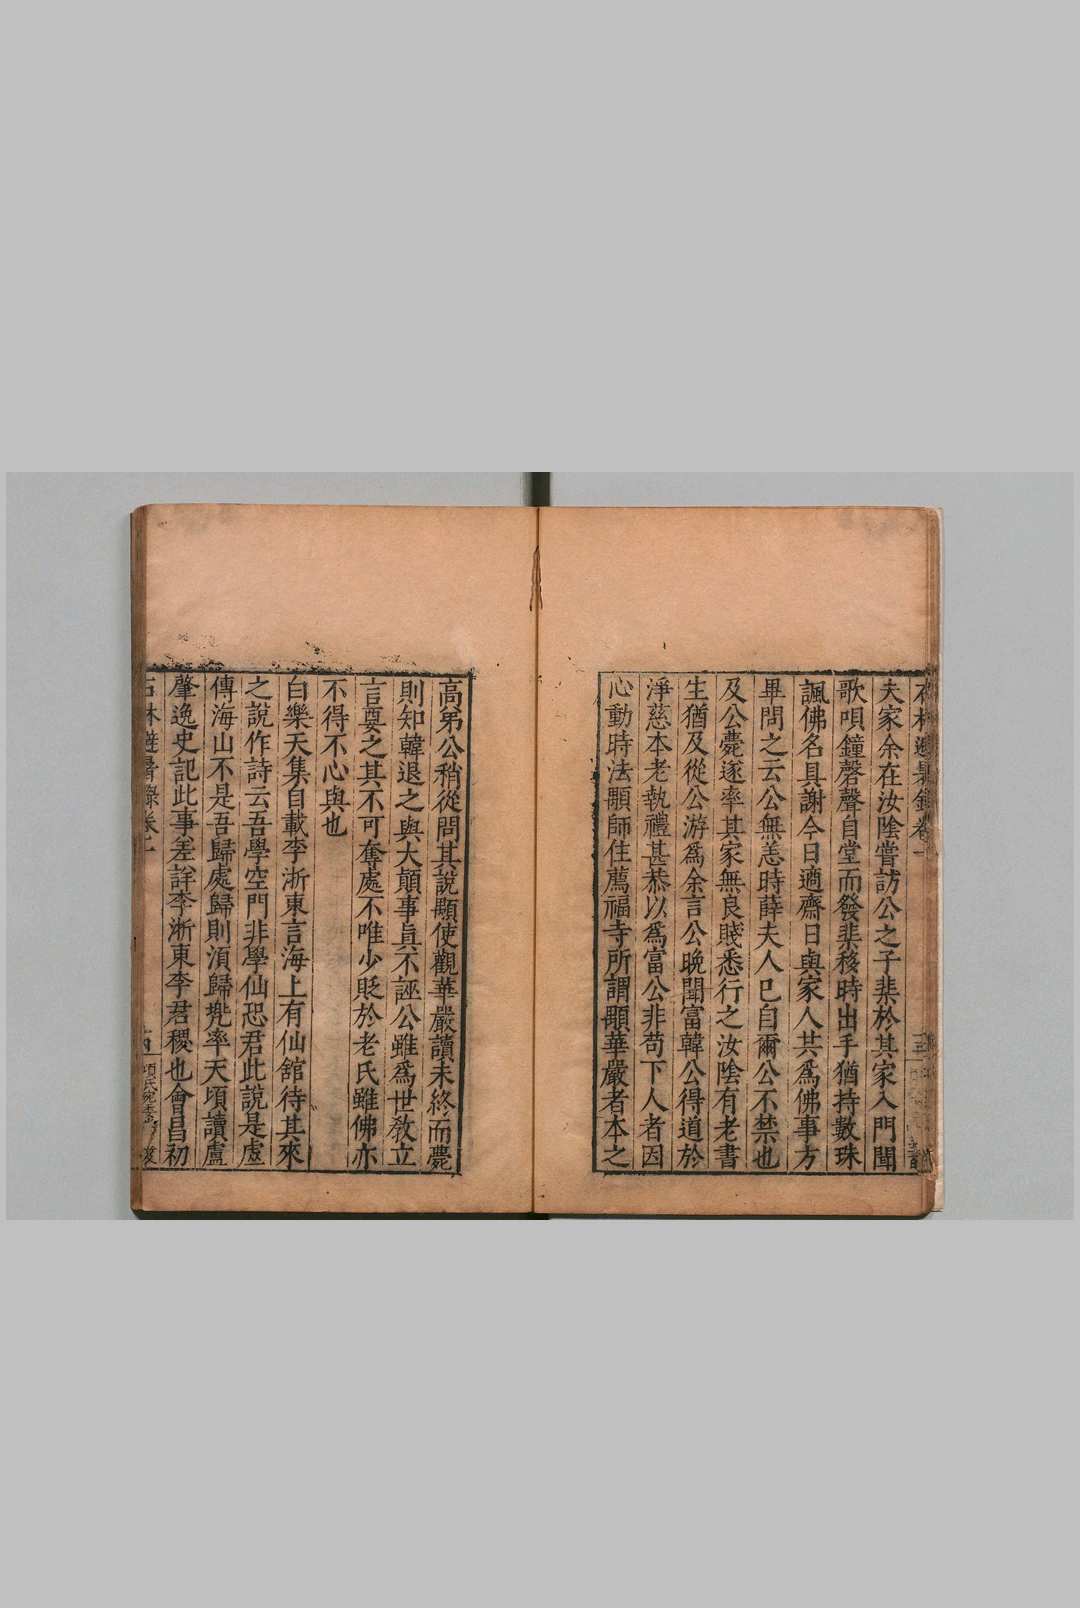 石林避暑錄卷一
夫家余在汝陰嘗訪公之子棐於其家入門聞
歌唄鐘磬聲自堂而發棐移時出手猶持數珠
諷佛名具謝今日適齋日與家人共爲佛事方
畢問之云公無恙時薛夫人已自爾公不禁也
及公薨遂率其家無良賤悉行之汝陰有老書
生猶及從公游爲余言公晩聞富韓公得道於
淨慈本老執禮甚恭以爲富公非苟下人者因
心動時法顒師住薦福寺所謂顒華嚴者本之
高弟公稍從問其說顒使觀華嚴讀未終而薨
則知韓退之與大顛事眞不誣公雖爲世敎立
言要之其不可奪處不唯少貶於老氏雖佛亦
不得不心與也
白樂天集自載李浙東言海上有仙舘待其來
之說作詩云吾學空門非學仙恐君此說是虛
傳海山不是吾歸處歸則須歸兠率天頃讀盧
肇逸史記此事差詳李浙東李君稷也會昌初
石林避暑錄卷一